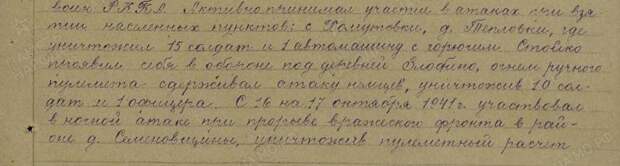 воин Р.К.К.А. Активно принимал участие в атаках при взя
тии населенных пунктов: с Хомутовки, д. Тепловки, где
уничтожил 15 солдат и 1 автомашину с горючим. Стойко
проявил себя в обороне под деревней Злобино, огнем ручного
пулемета сдерживал атаку немцев, уничтожив 10 сол-
дат и 1 офицера. С 16 на 17 октября 1941г. участвовал
в ночной атаке при прорыве вражеского фронта в рай-
оне д. Семеновщины, уничтожив пулеметный расчет